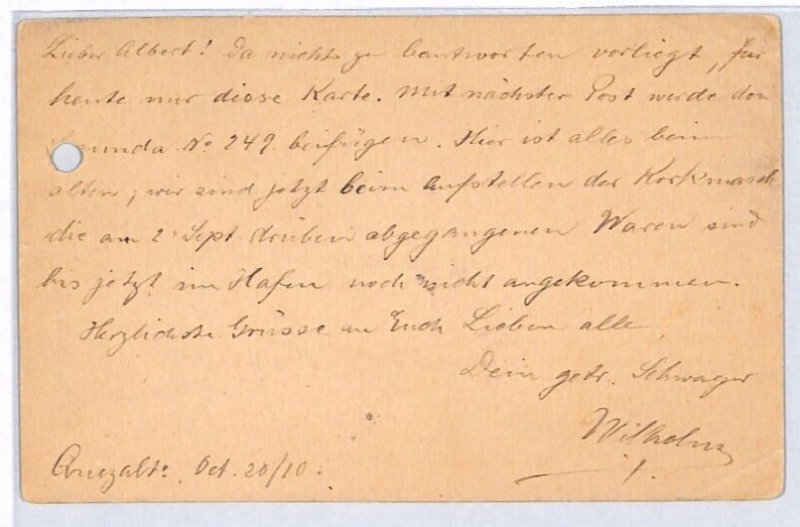 Lieber Albert! Da nichts zu bantworten vorliegt, für
heute nur diese Karte. Mit nächster Post werde den
No 249 beifügen. Hier ist alles beim
alten; wir sind jetzt beim Aufstellen der Korkmasch
die am 2 Sept. drüben abgegangenen Waren sind
bis jetzt im Hafen noch nicht angekommen.
Herzlichste Grüsse an Euch Lieben alle
Dein getr. Schwager
Wilhelm
Oct. 20/10.